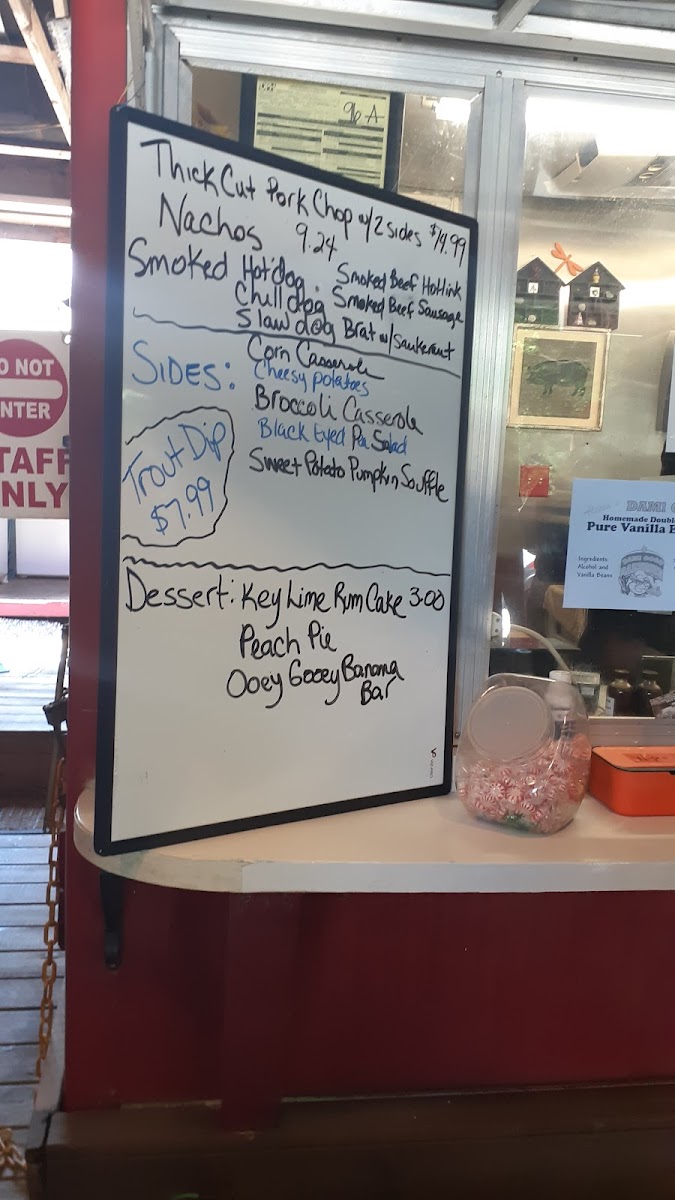 96-A
Thick Cut Pork Chop w/2 sides $14.99
Nachos 9.24
Smoked Hotdog . Smoked Beef Hotlink
Chili dog Smoked Beef Sausage
Slaw dog Brat w/saukeraut
SIDES: Corn Casserole
Cheesy potatoes
Broccoli Casserole
Black Eyed Pea Salad
Sweet Potato Pumpkin Souffle
Trout Dip
$7.99
Dessert: Key Lime Rum Cake 3.00
Peach Pie
Ooey Gooey Banana
Bar
O NOT
NTER
TAFF
NLY
DAMI
Homemade Double
Pure Vanilla E
Ingredients:
Alcohol and
Vanilla Beans